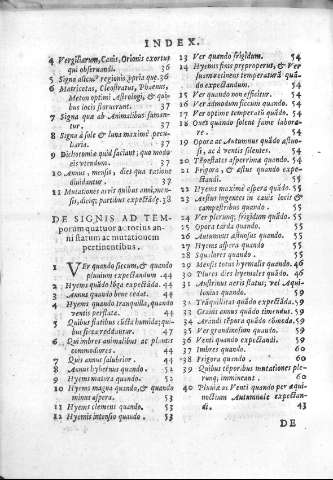 INDEX.
4 Vergiliarum, Canis, Orionis exortus
qui observandi. 36
5 Signa alicui⁹ regionis ꝓpria quę. 36
6 Matricetas, Cleostratus, Phaenus,
Meton optimi Astrologi, & quibus
locis floruerunt. 37
7 Signa quæ ab Animalibus sumantur.
37
8 Signa à sole & luna maximè peculiaria.
37
9 Dichotomia quid faciant; quo modo
eis utendum. 37
10 Annus, mensis, dies qua ratione
dividantur. 37
11 Mutationes aëris quibus anni, mensis,
dieiq; partibus expectãdę. 38
DE SIGNIS AD TEMporum
quatuor ac totius anni
statum ac mutationem
pertinentibus.
1 VEr quando siccum, & quando
pluvium expectandum 44
2 Hyems quãdo lõga expectãda. 44
3 Annus quando bene cedat. 44
4 Hyems quando tranquilla, quando
ventis perflata. 44
5 Quibus flatibus cũcta humida; quibus
sicca reddantur. 47
6 Qui imbres animalibus ac plantis
commodiores. 44
7 Quis annus salubrior. 44
8 Annus hybernus quando 52
9 Hyems matura quando 52
10 Hyems magna quando, & quando
minus aspera. 53
11 Hyems clemens quando. 53
12 Hyemis intensio quando. 53
13 Ver quando frigidum. 54
14 Hyemis finis properus, & Ver
sua temperatura quãdo
expectandum. 54
15 Ver quando non efficitur. 54
16 Ver admodum siccum quando. 54
17 Ver optime temperatũ quãdo. 54
18 Oues quando solent fame laborare.
54
19 Opora ac Autumnus quãdo æstuosi,
ac à ventis silentes. 54
20 Tẽpestates asperrima quando. 54
21 Frigora, & æstus quando expectandi.
54
22 Hyems maximè aspera quãdo. 54
23 Aestus ingentes in cavis locis &
campestribus quando. 54
24 Ver plerunq; frigidum quãdo. 55
25 Opora tarda quando. 55
26 Autumnus æstuosus quando. 55
27 Hyems aspera quando 55
28 Squilores quando. 55
29 Messis totus hyemalis quando. 46
30 Plures dies hyemales quãdo. 46
31 Austrinus aeris status, vel Aquilonius
quando. 59
32 Trãquillitas quãdo expectãda. 59
33 Grauis annus quãdo timendus. 59
34
35 Ver grandinosum quando. 55
36 Venti quando expectandi. 60
37 Imbres quando. 60
38 Frigora quando. 60
39 Quibus tẽporibus mutationes plerunq;
immineant. 60
40 Pluviæ ac Venti quando per æquinoctium
Autumnale expectandi.
43
DE